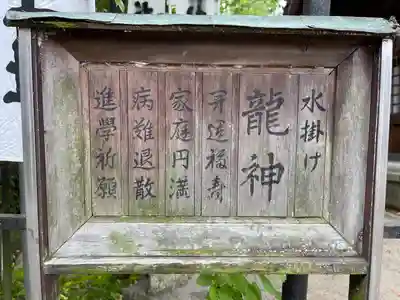 水掛け
龍神
昇運福寿
家庭円満
病難退散
進學祈願